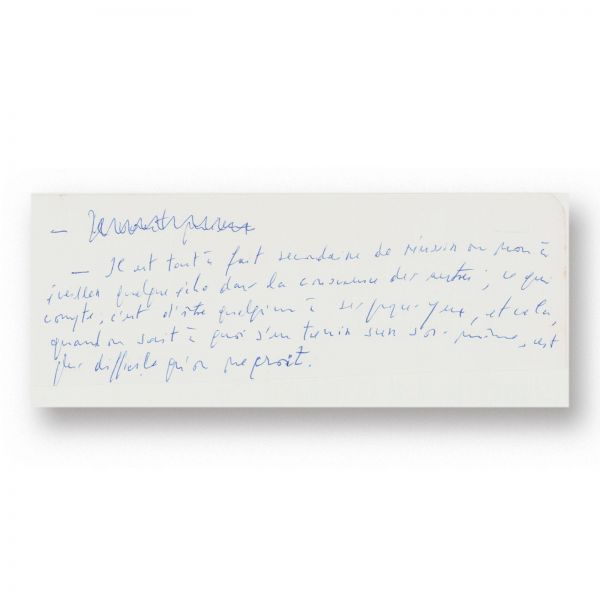 —
— Il est tout à fait secondaire de réussir ou non à
éveiller quelque écho dans la conscience des autres ; ce qui
compte, c'est d'être quelqu'un à ses propres yeux, et cela,
quand on sait à quoi s'en tenir sur soi-même, est
plus difficile qu'on ne croit.